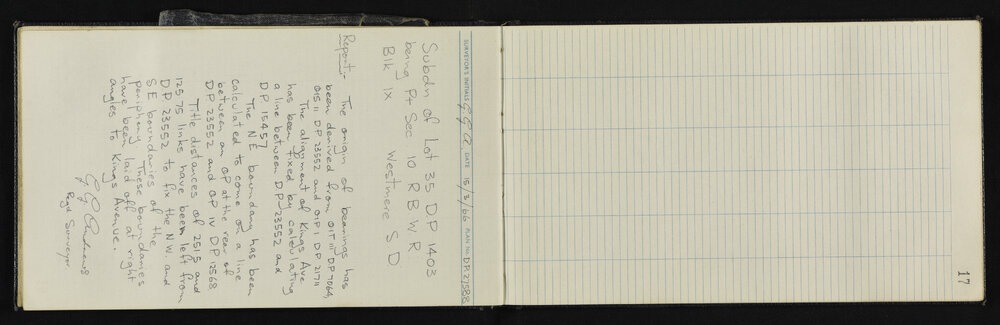 SURVEYOR'S INITIALS G G A DATE 15/3/66 PLAN No. DP 27588
Subdn of Lot 35 DP 1403
being Pt Sec. 10 R B W. R
Blk IX Waitemere S D
Report:- The origin of bearings has
been derived from OIT III DP 7064,
OIS II DP 23552 and OIP I DP 21711
The alignment of Kings Ave
has been fixed by calculating
a line between DP 23552 and
DP 15457
The NE boundary has been
calculated to come on a line
between an OP at the rear of
DP 23552 and OP IV DP 12568
Title distances of 251.5 and
125.75 links have been left from
DP 23552 to fix the N.W. and
S E boundaries of the
periphery. These boundaries
have been laid off at right
angles to Kings Avenue.
G G Andrews
Regd Surveyor
17